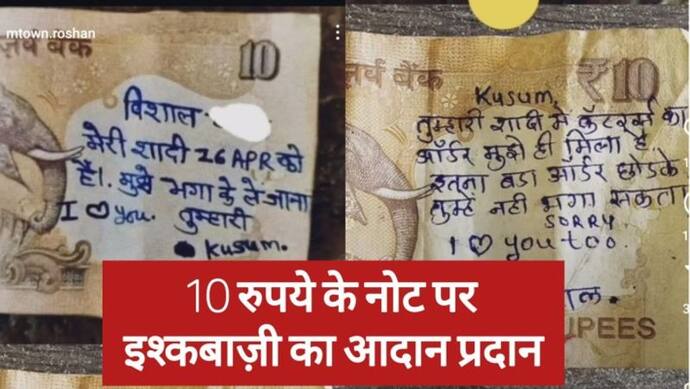 mtown.roshan
ज़र्व बैंक
10
विशाल
मेरी शादी 26 APR को
है।. मुझे भगा के ले जाना
I ♡ you. तुम्हारी
Kusum.
ज़र्व बैंक
₹10
Kusum,
तुम्हारी शादी में कॅटरर्स का
ऑर्डर मुझे ही मिला है.
इतना बडा ऑर्डर छोडके
तुम्हे नही भगा सकता
SORRY
I ♡ you too.
UPEES
10 रुपये के नोट पर
इश्कबाज़ी का आदान प्रदान